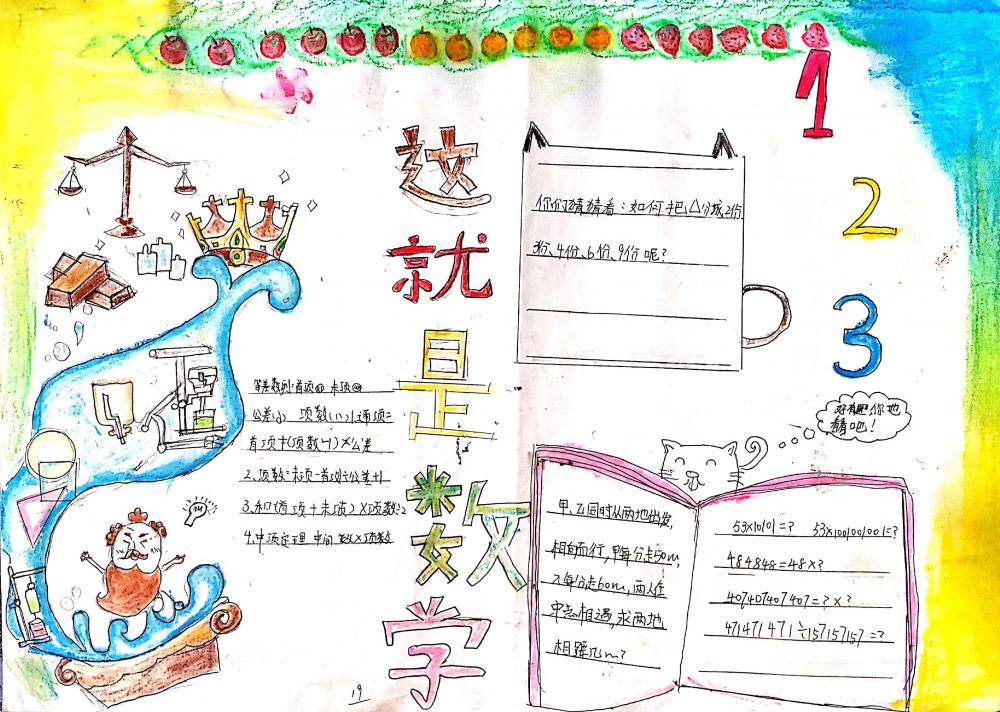 这就是数学
1
2
3
你们猜猜看：如何把△分成2份
3份、4份、6份、9份呢？
等差数列:首项a1 末项an
公差d 项数(n)1.通项=
首项+(项数-1)×公差
2.项数=末项-首项÷公差+1
3.和(首项+末项)×项数÷2
4.中项定理 中间数×项数
你也
猜吧！
甲乙同时从两地出发,
相向而行,甲每分走50m,
乙每分走60m,两人在
中点相遇,求两地
相距几m?
53×101=? 53×1001001=?
484848=48×?
407407407=?×?
471471471÷157157157=?
19